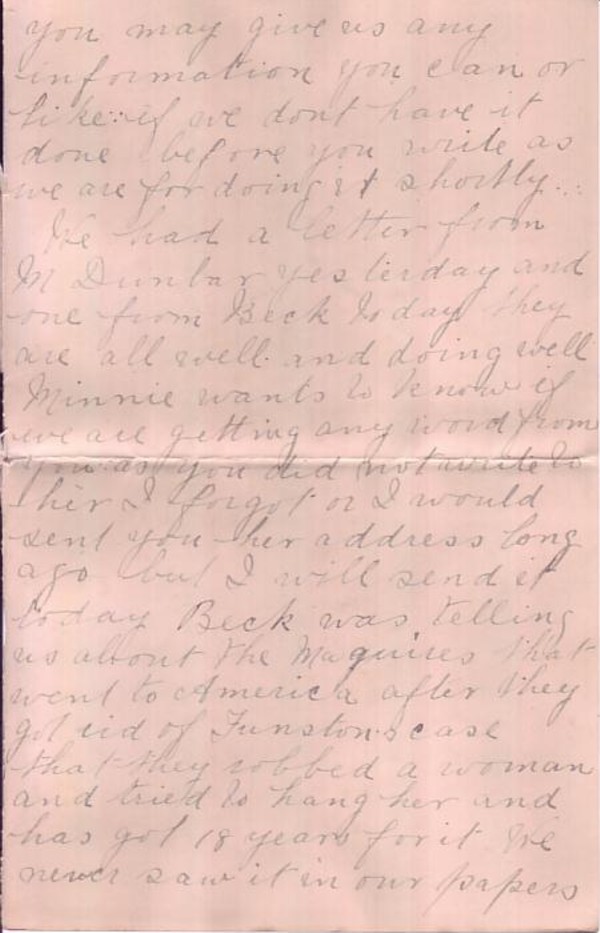 you may give us any
information you can or
like if we dont have it
done before you write as
we are for doing it shortly..
We had a letter from
M Dunbar yesterday and
one from Beck today they
are all well and doing well
Minnie wants to know if
we are getting any word from
you as you did not write to
her I forgot or I would
sent you her address long
ago but I will send it
today Beck was telling
us about the Maguires that
went to America after they
got rid of Funston's case
that they robbed a woman
and tried to hang her and
has got 18 years for it We
never saw it in our papers